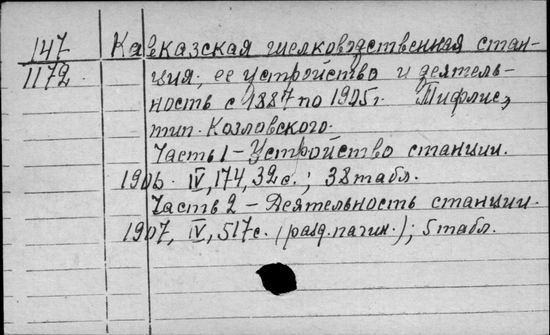 147
1172
Кавказская шелководственная стан-
ция, ее устройство и деятель-
ность с 1887 по 1905г. Тифлис,
тип. Козловского.
Часть 1 - Устройство станции.
1906. IV, 174, 32 с.; 38 табл.
Часть 2 - Деятельность станции.
1907, IV, 517 с. (разд. пагин.); 5 табл.